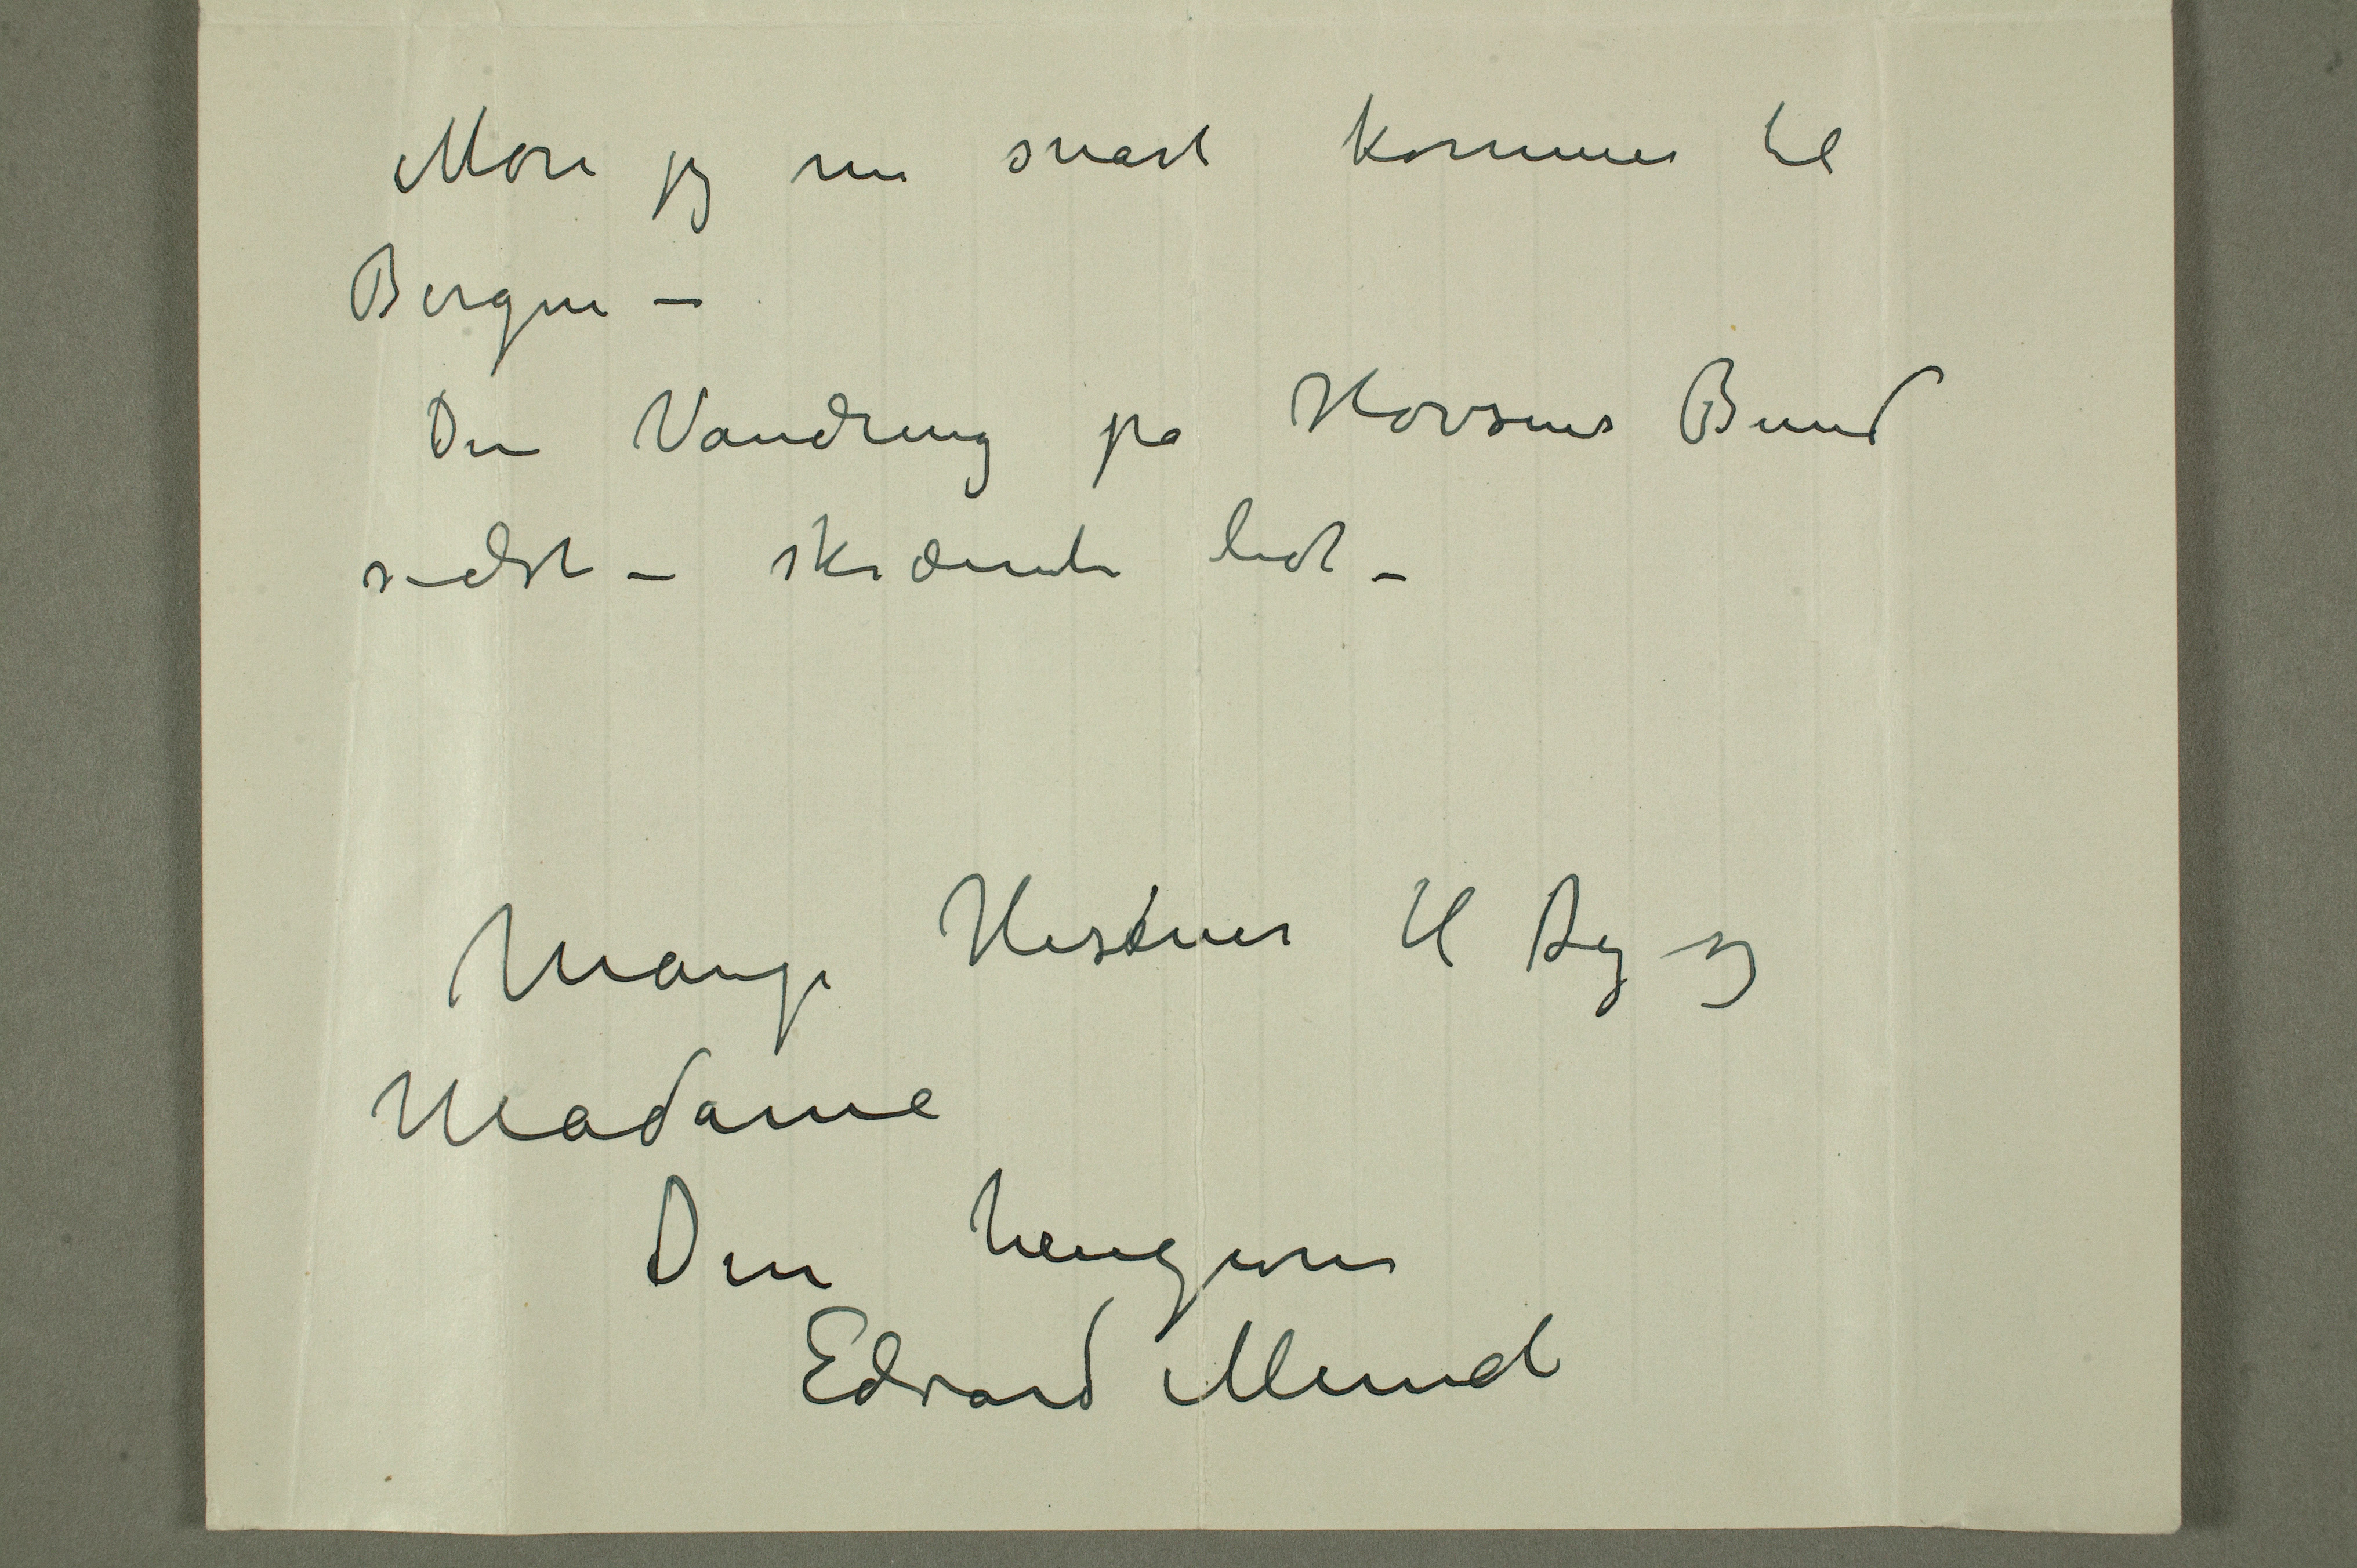 Mon jeg nu snart kommer til
Bergen –
Den Vandring på Havsens Bund
sidst – skræmte lidt –
Mange Hilsener til Dig og
Madame
Din hengivne
Edvard Munch